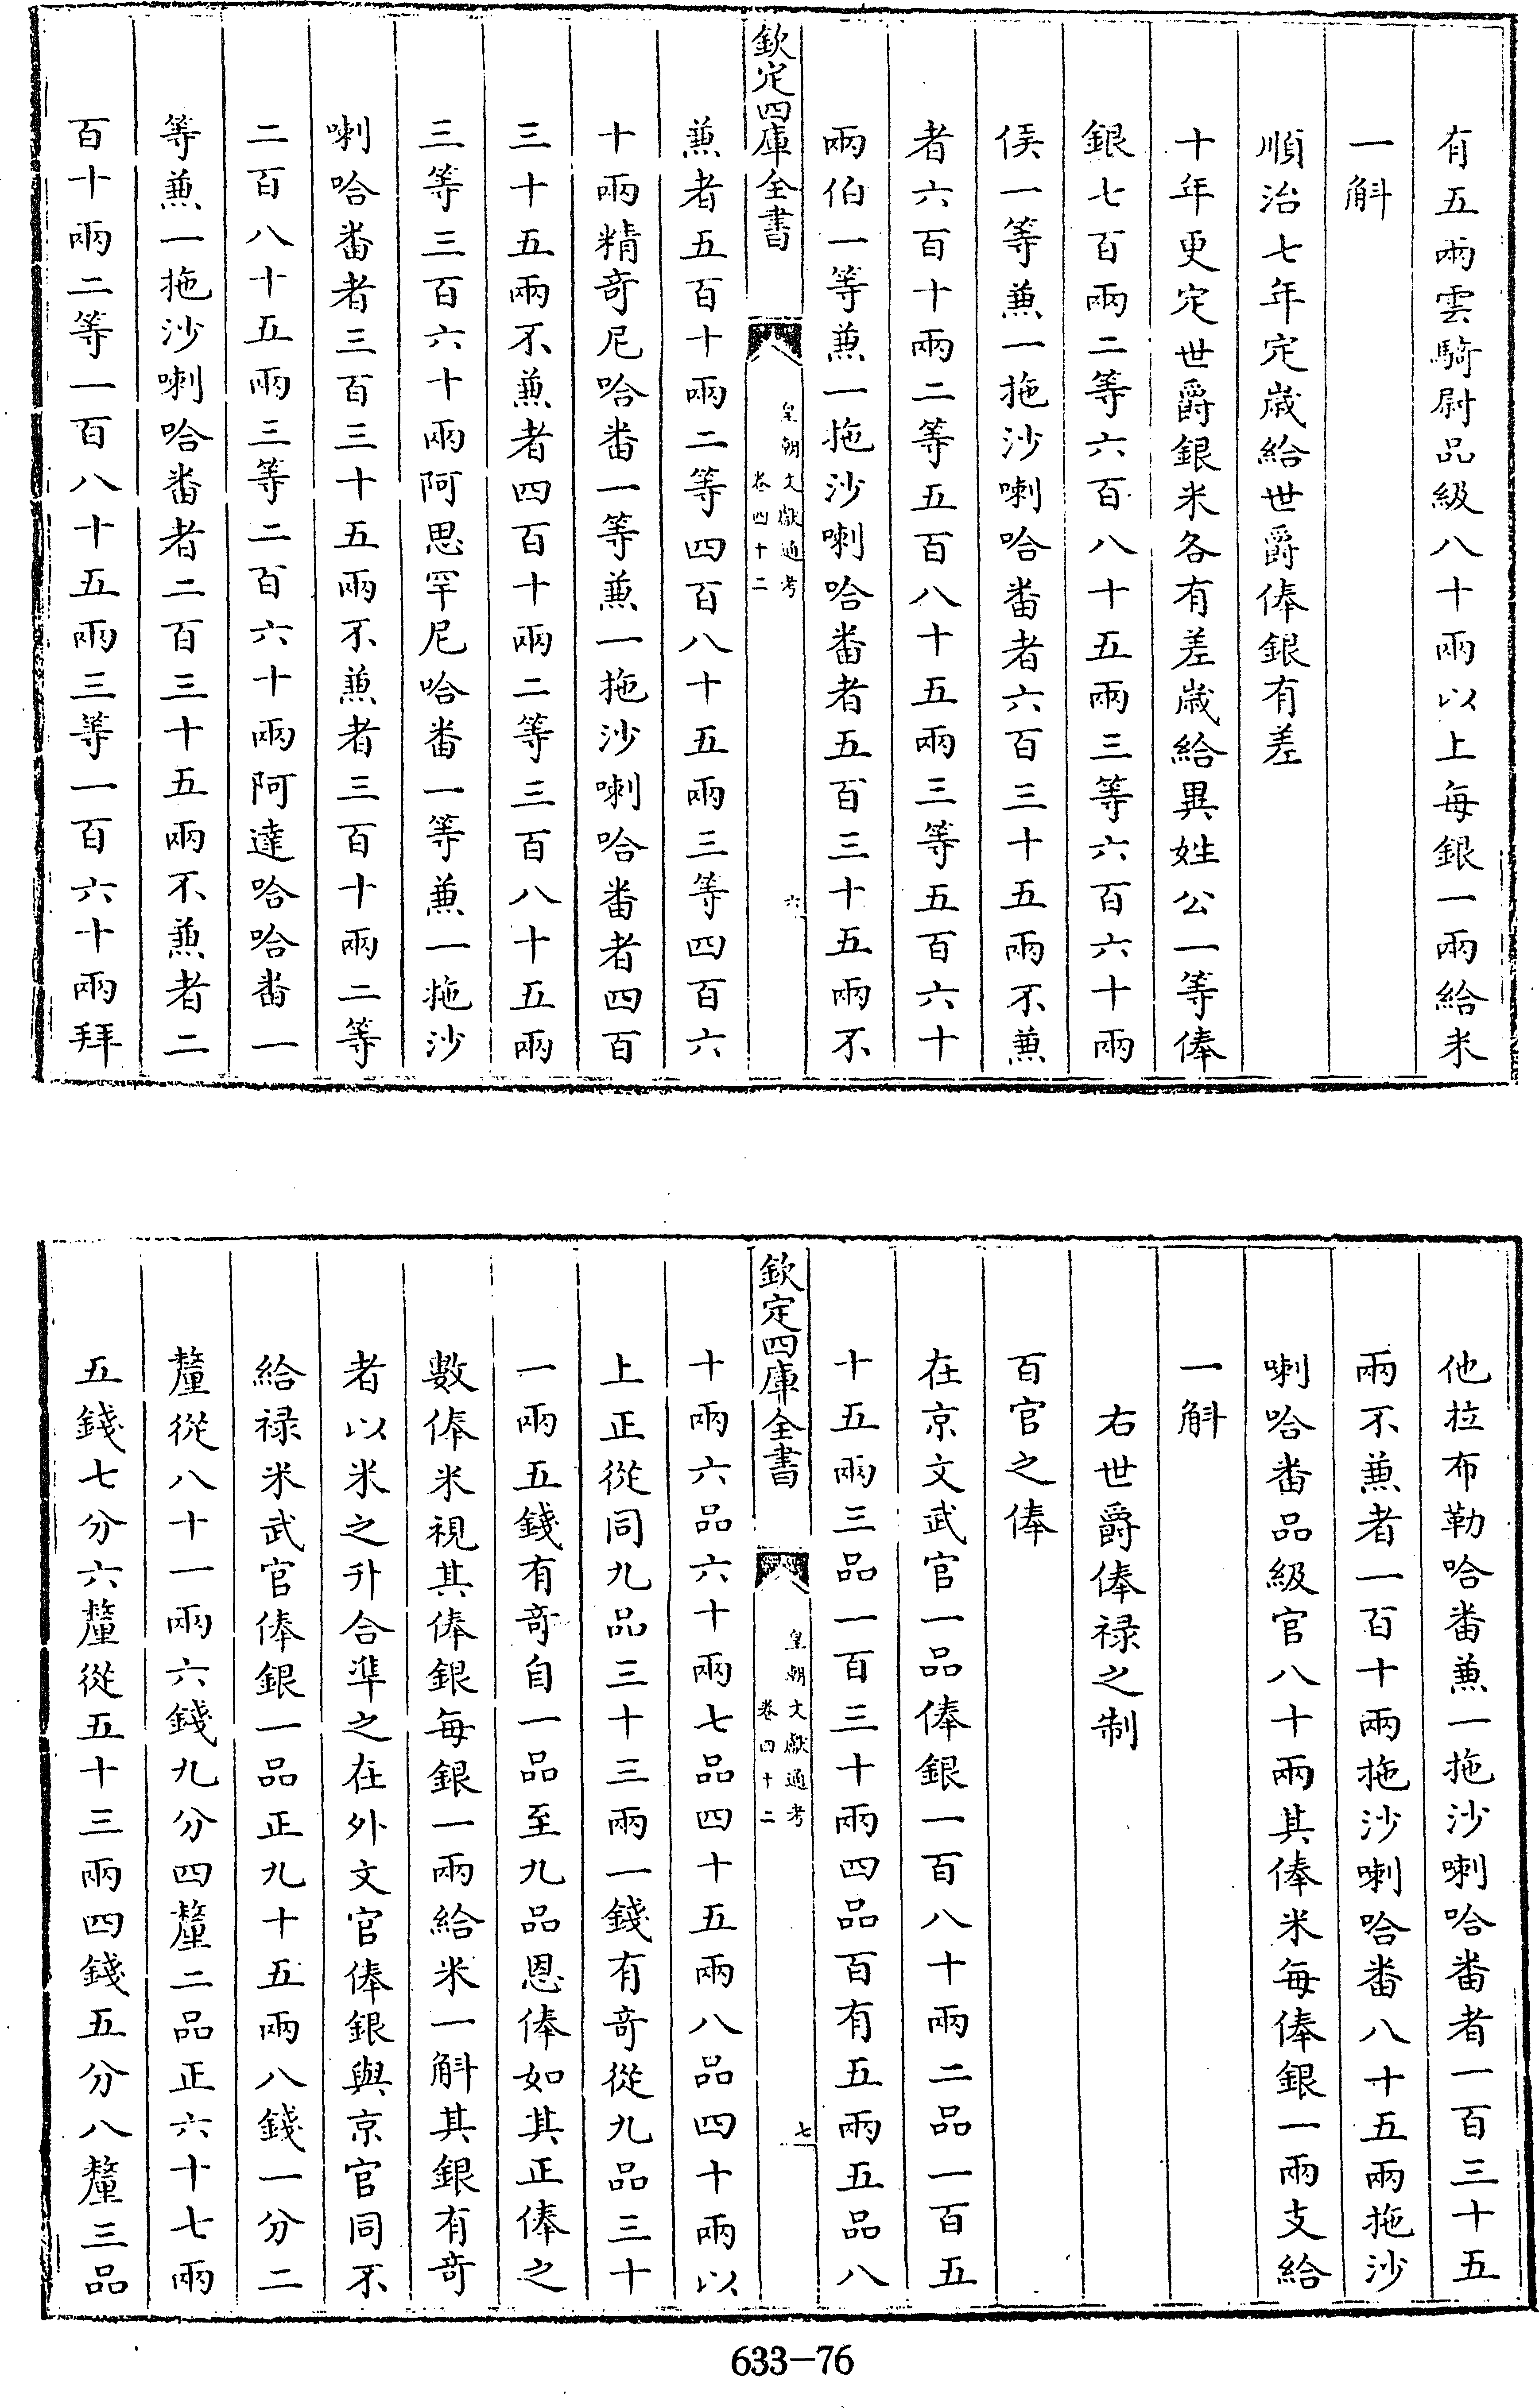 有五兩雲騎尉品級八十兩以上每銀一兩給米
一斛
順治七年定歲給世爵俸銀有差
十年更定世爵銀米各有差歲給異姓公一等俸
銀七百兩二等六百八十五兩三等六百六十兩
侯一等兼一拖沙喇哈番者六百三十五兩不兼
者六百十兩二等五百八十五兩三等五百六十
兩伯一等兼一拖沙喇哈番者五百三十五兩不
欽定四庫全書
皇朝文獻通考
卷四十二
六
兼者五百十兩二等四百八十五兩三等四百六
十兩精奇尼哈番一等兼一拖沙喇哈番者四百
三十五兩不兼者四百十兩二等三百八十五兩
三等三百六十兩阿思罕尼哈番一等兼一拖沙
喇哈番者三百三十五兩不兼者三百十兩二等
二百八十五兩三等二百六十兩阿達哈哈番一
等兼一拖沙喇哈番者二百三十五兩不兼者二
百十兩二等一百八十五兩三等一百六十兩拜
他拉布勒哈番兼一拖沙喇哈番者一百三十五
兩不兼者一百十兩拖沙喇哈番八十五兩拖沙
喇哈番品級官八十兩其俸米每俸銀一兩支給
一斛
右世爵俸禄之制
百官之俸
在京文武官一品俸銀一百八十兩二品一百五
十五兩三品一百三十兩四品百有五兩五品八
欽定四庫全書
皇朝文獻通考
卷四十二
七
十兩六品六十兩七品四十五兩八品四十兩以
上正從同九品三十三兩一錢有奇從九品三十
一兩五錢有奇自一品至九品恩俸如其正俸之
數俸米視其俸銀每銀一兩給米一斛其銀有奇
者以米之升合準之在外文官俸銀與京官同不
給禄米武官俸銀一品正九十五兩八錢一分二
釐從八十一兩六錢九分四釐二品正六十七兩
五錢七分六釐從五十三兩四錢五分八釐三品
633-76